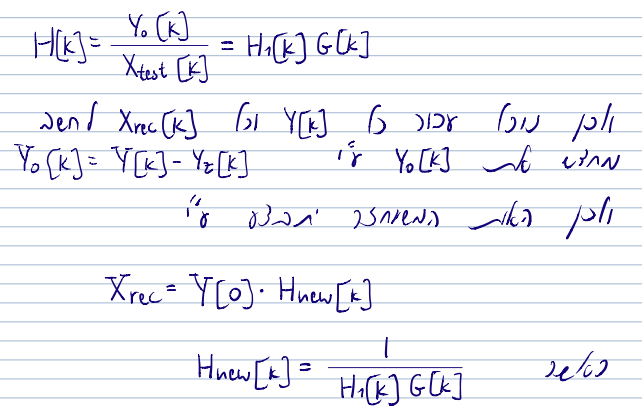 H[k] = Y₀[k] / X_test[k] = H₁[k] G[k]
ולכן נוכל עבור כל Y[k] וכל X_rec[k] לחשב
מחדש את Y₀[k] ע"י Y₀[k] = Y[k] - Y_z[k]
ולכן האות המשוחזר יתבצע ע"י
X_rec = Y[0] · H_new[k]
כאשר H_new[k] = 1 / H₁[k] G[k]